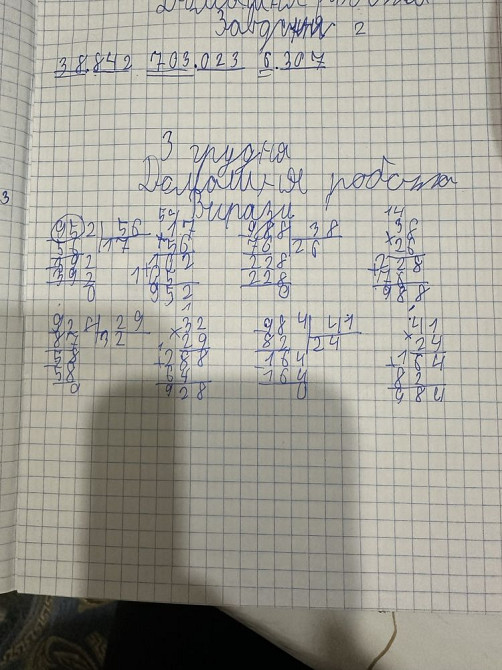 Домашня робота
Завдання 2
38.842 703.023 6.307
3 грудня
Домашня робота
Вирази
952 56 17 988 38 38
56 17 56 76 26 26
392 102 228 228
392 85 228 76
0 952 0 988
928 29 32 984 41 41
87 32 29 82 24 24
58 288 164 164
58 64 164 82
0 928 0 984